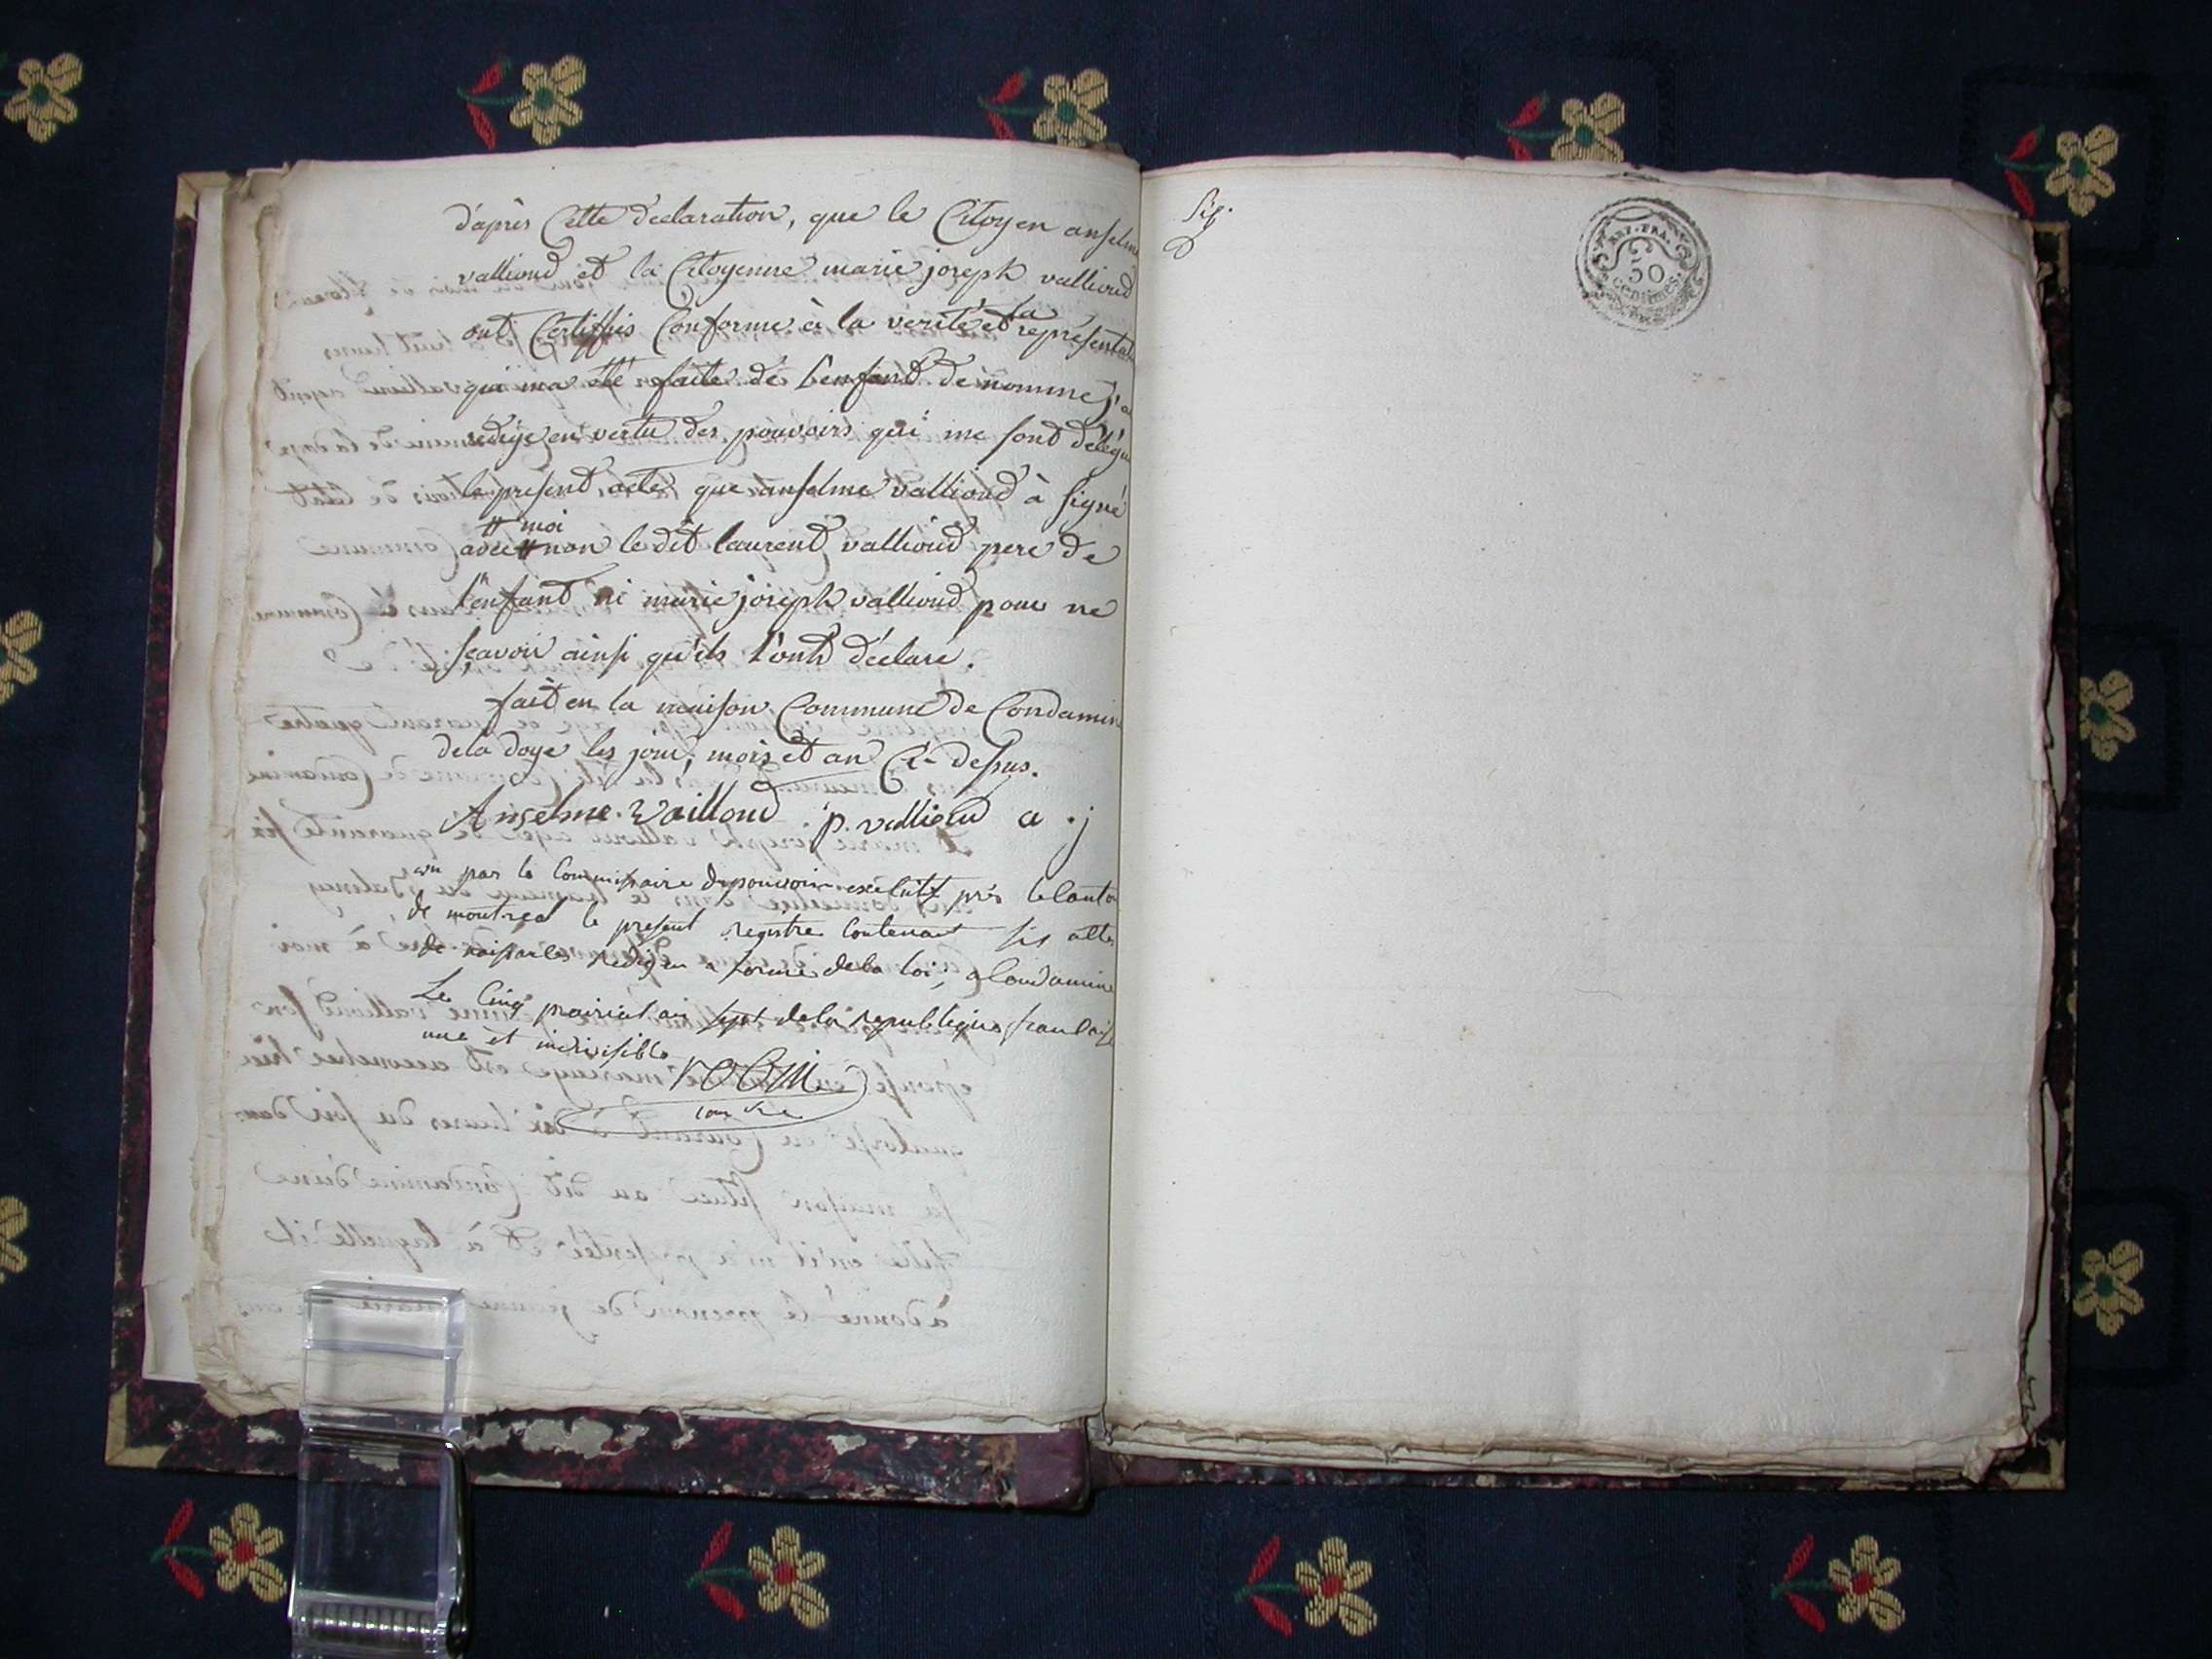 d'après Cette declaration, que le Citoyen anselme
vallioud et la Citoyenne marie joseph vallioud
ont Certiffiés Conforme à la verité et la représentati
qui ma été faite de l'enfant denommé, j'ai
redigé en vertu des pouvoirs qui me sont délégu
le présent acte que anselme vallioud à signé
avec moi non le dit laurent vallioud pere de
l'enfant ni marie joseph vallioud pour ne
sçavoir ainsi qu'ils l'ont déclaré.
fait en la maison Commune de Condamine
dela doye les jour, mois et an Ci-dessus.
Anselme. Vailloud p. vallioud a. j
vu par le Commissaire du pouvoir exécutif près le Canton
de montreal le present registre Contenant six actes
de naissances redigés a forme dela loi, a Condamine
Le Cinq prairial an sept dela republique francaise
une et indivisible
Six.
REP. FRA.
50
centimes.